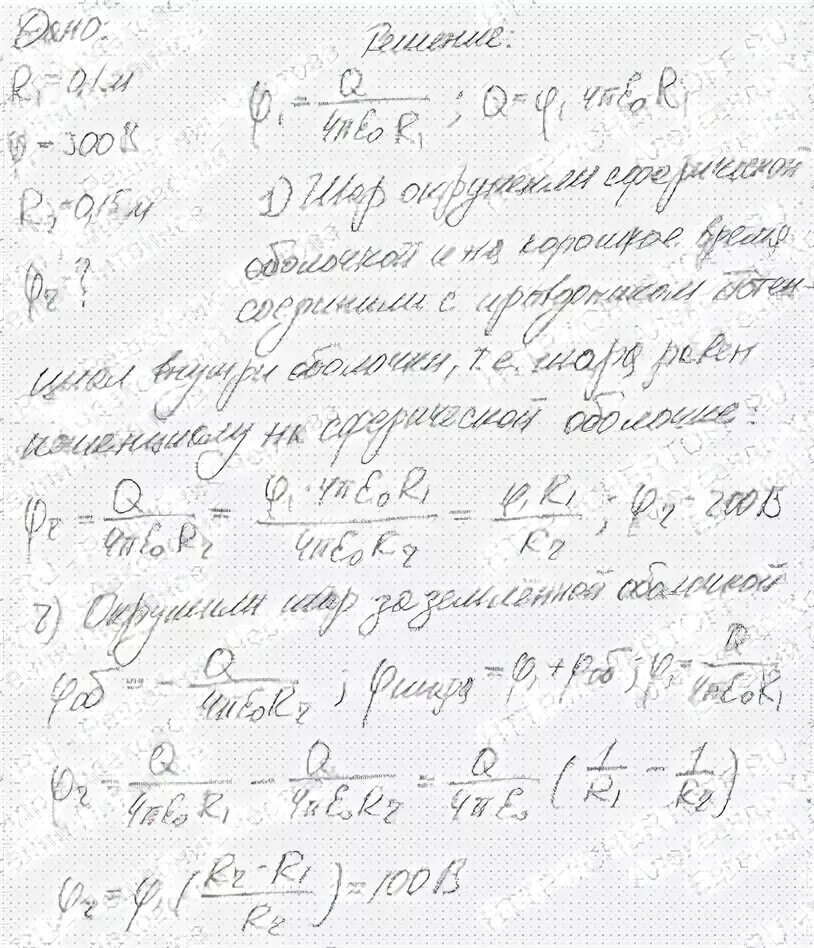 Дано:
Решение:
R₁ = 0,1 м
φ₁ = Q / (4πε₀R₁) ; Q = φ₁ 4πε₀R₁
φ = 300 В
R₂ = 0,15 м
1) Шар окружили сферической
φ₂ - ?
оболочкой и на короткое время
соединили с проводником потен-
циал внутри оболочки, т.е. шара равен
потенциалу на сферической оболочке:
φ₂ = Q / (4πε₀R₂) = φ₁ · 4πε₀R₁ / (4πε₀R₂) = φ₁R₁ / R₂ ; φ₂ = 200 В
2) Окружили шар заземленной оболочкой
φоб = - Q / (4πε₀R₂) ; φшара = φ₁ + φоб ; φ₁ = Q / (4πε₀R₁)
φ₂ = Q / (4πε₀R₁) - Q / (4πε₀R₂) = Q / (4πε₀) (1/R₁ - 1/R₂)
φ₂ = φ₁ ((R₂ - R₁) / R₂) = 100 В